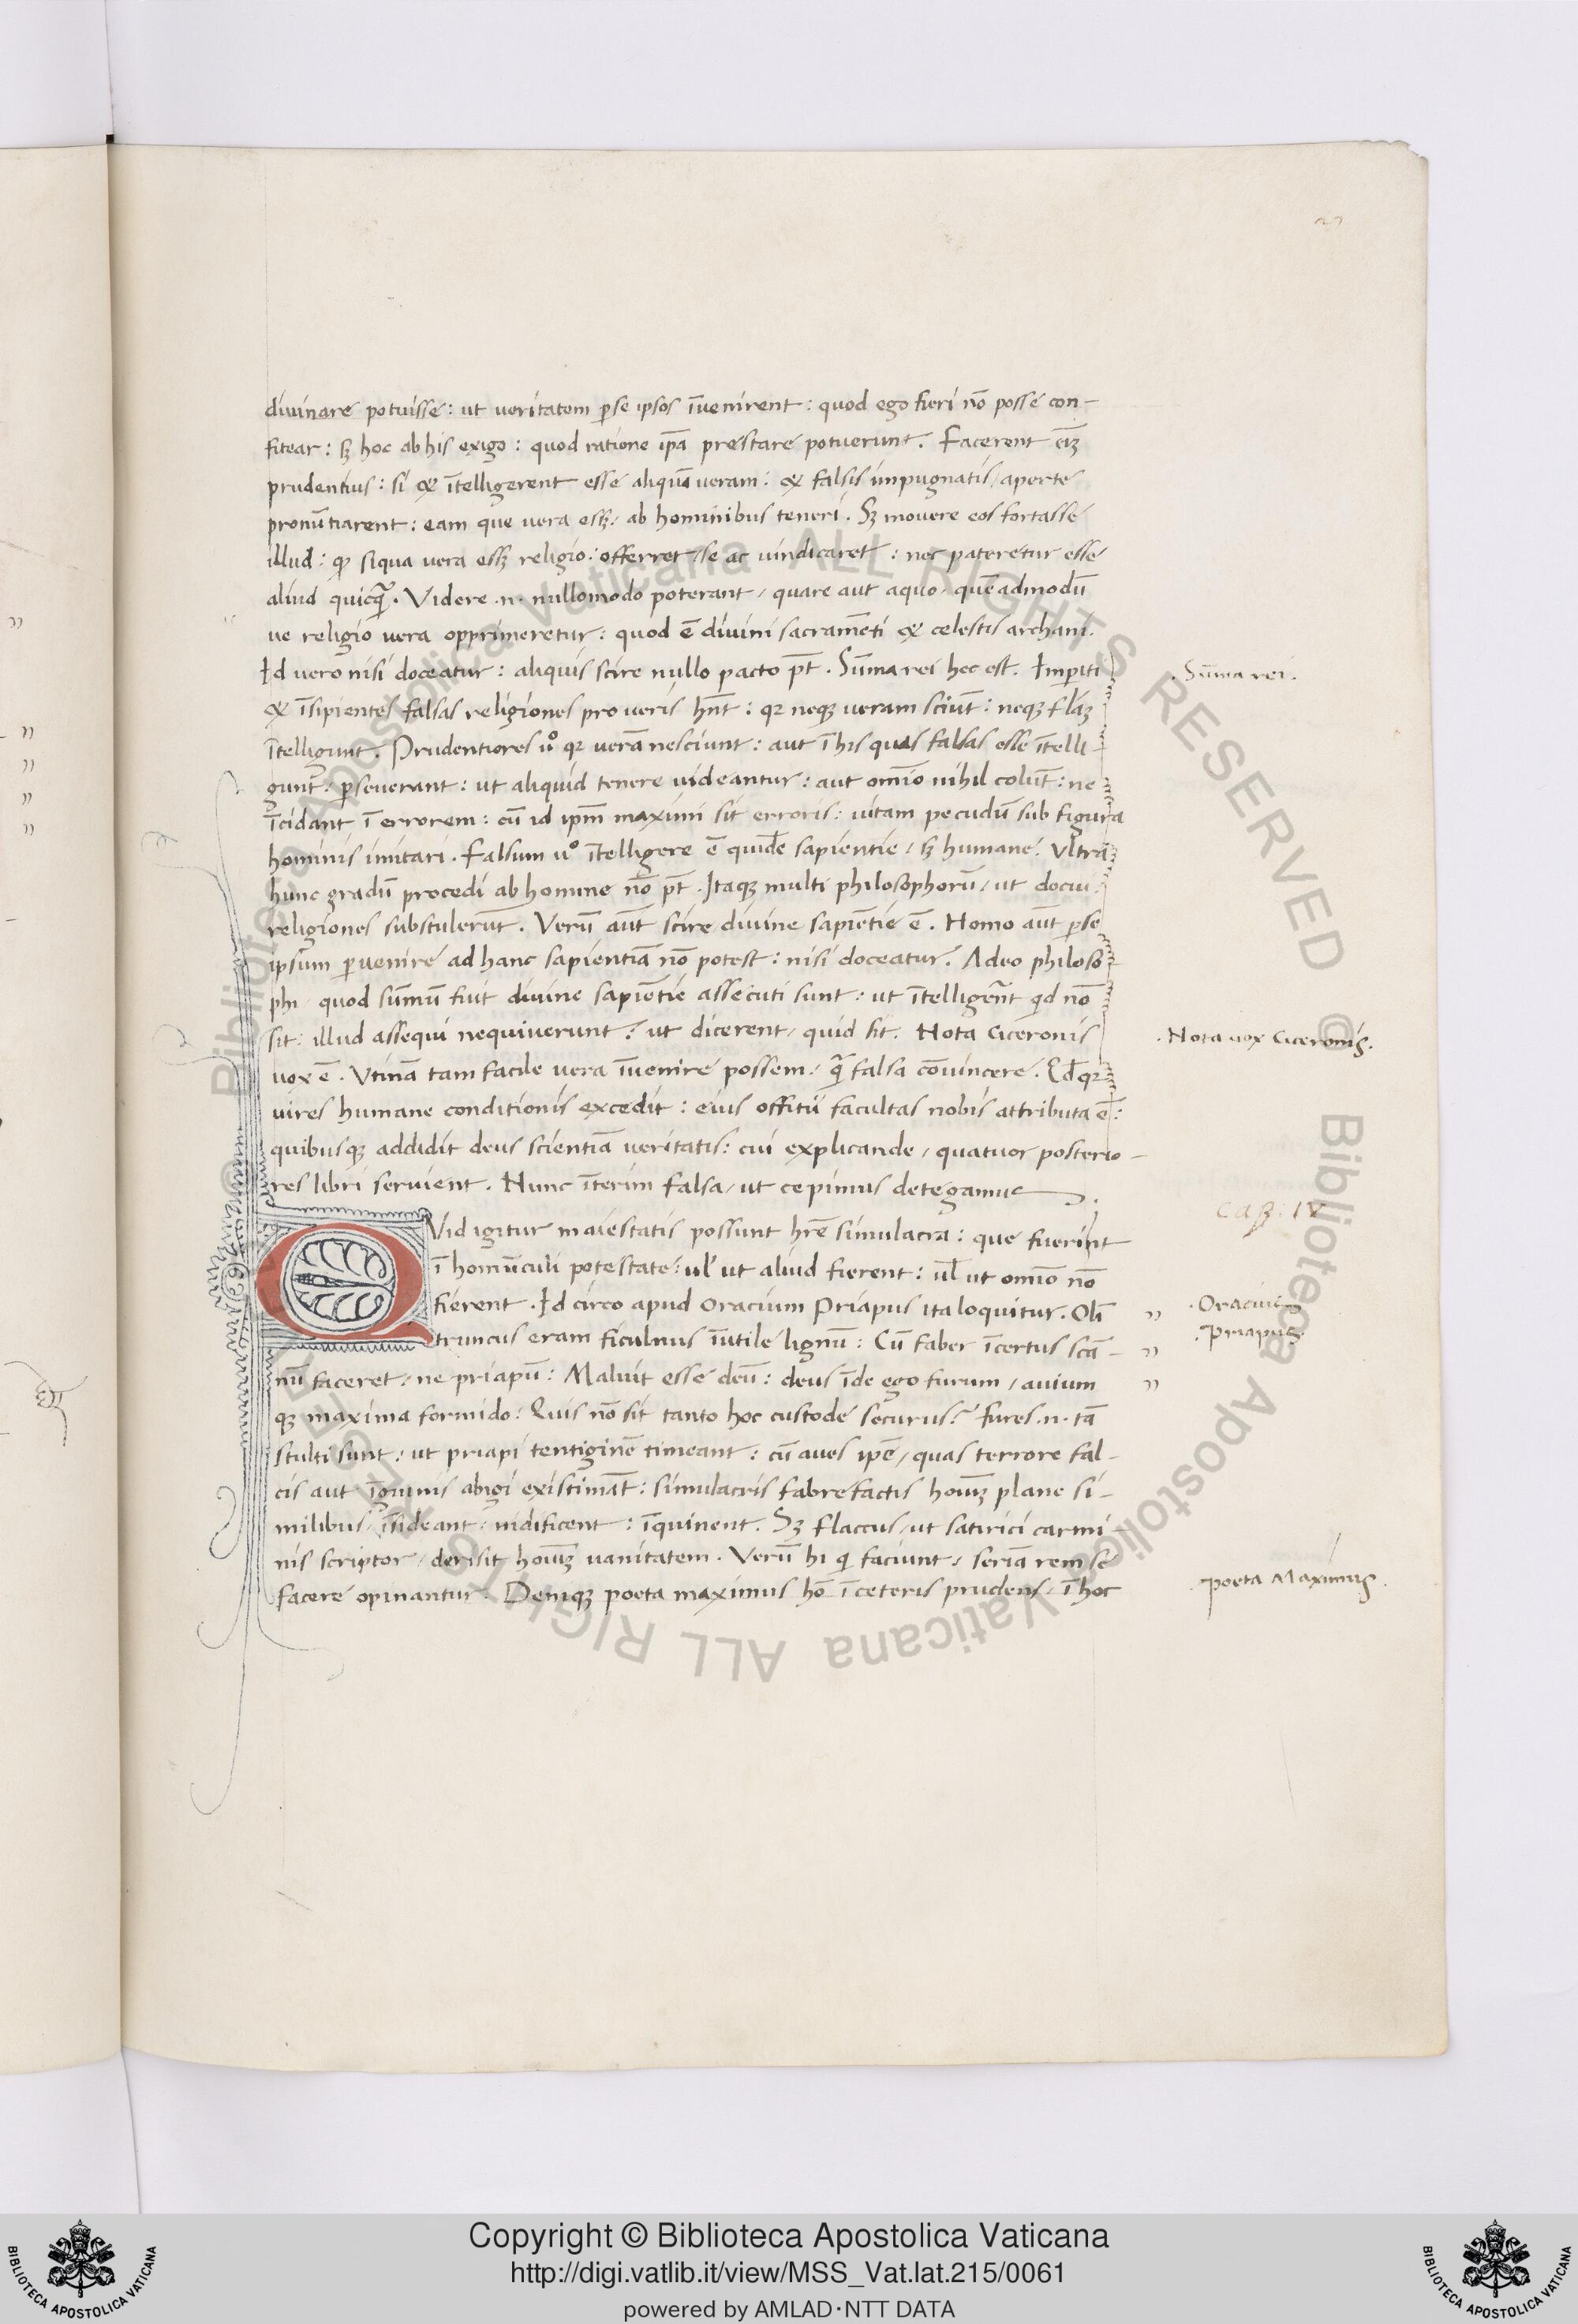 divinare potuisse: ut veritatem ꝑse ipsos īvenirent: quod ego fieri nō posse con-
fitear: sꝫ hoc ab his exigo: quod ratione ip̄a prestare potuerunt. Facerent
prudentius: si & ītelligerent esse aliquā veram: & falsis impugnatis/ aperte
pronūtiarent: eam que vera essꝫ/ ab hominibus teneri. Sꝫ movere eos fortasse
illud: siqua vera essꝫ religio: offerret/ se ac vindicaret: nec pateretur esse
aliud quicꝗ̄. Videre .n. nullomodo poterant/ quare aut aquo/ quēadmodū
ve religio vera opprimeretur: quod ē divini sacramēti & celestis archani.
Id vero nisi doceatur: aliquis scire nullo pacto pt̄. Sūma rei hec est. Imꝑiti
& īsipientes falsas religiones pro veris hn̄t: qꝛ neqꝫ veram sciūt: neqꝫ
ītelligunt. Prudentiores vº qꝛ verā nesciunt: aut ī his quas falsas esse ītelli-
gunt: ꝑseverant: ut aliquid tenere videantur: aut omīo nihil colūt: ne
īcidant ī errorem: cū id ipm̄ maximi sit erroris: vitam pecudū sub figura
hominis imitari. Falsum vº ītelligere ē quidē sapientie/ sꝫ humane. Ultra
hunc gradū procedi ab homine nō pt̄. Itaqꝫ multi philosophorū/ ut docui:
religiones substulerūt. Verū aūt scire/ divine sapiētie ē. Homo aūt ꝑse
ipsum ꝑvenire ad hanc sapientiā nō potest: nisi doceatur. Adeo philoso-
phi quod sūmū fuit divine sapiētie assecuti sunt: ut ītelligerēt qd nō
sit: illud assequi nequiverunt: ut dicerent/ quid sit. Nota Ciceronis
vox ē. Utinā tam facile vera īvenire possem/ ꝗ̄ falsa cōvincere. Qd̄ qꝛ
vires humane conditionis excedit: eius offitii facultas nobis attributa ē:
quibusqꝫ addidit deus scientiā veritatis: cui explicande/ quatuor posterio-
res libri servient. Nunc īterim falsa/ ut cepimus detegamus.
Cap: IV
QVid igitur maiestatis possunt hr̄e simulacra: que fuerint
ī homūculi potestate: ul̄ ut aliud fierent: ul̄ ut omīo nō
fierent. Id circo apud Oracium Priapus ita loquitur. Olī
truncus eram ficulnus īutile lignū: Cū faber īcertus scā-
nū faceret/ ne priapū: Maluit esse deū: deus īde ego furum/ avium
qꝫ maxima formido: Quis nō sit tanto hoc custode securus? fures .n. tā
stulti sunt: ut priapi tentiginē timeant: cū aves ipē/ quas terrore fal-
cis aut īguinis abigi existimāt: simulacris fabrefactis hoīuꝫ plane si-
milibus/ īsideant: nidificent: īquinent. Sꝫ flaccus/ ut satirici carmi-
nis scriptor/ derisit hoīuꝫ vanitatem. Verū hi qi faciunt/ seriā rem se
facere opinantur. Deniqꝫ poeta maximus hō ī ceteris prudens/ ī hoc
. Sūma rei.
. Nota vox Ciceronis.
. Oracius
. Priapus.
. poeta Maximus.
Copyright © Biblioteca Apostolica Vaticana
http://digi.vatlib.it/view/MSS_Vat.lat.215/0061
powered by AMLAD·NTT DATA
BIBLIOTECA APOSTOLICA VATICANA
BIBLIOTECA APOSTOLICA VATICANA
© Biblioteca Apostolica Vaticana ALL RIGHTS RESERVED
© Biblioteca Apostolica Vaticana ALL RIGHTS RESERVED